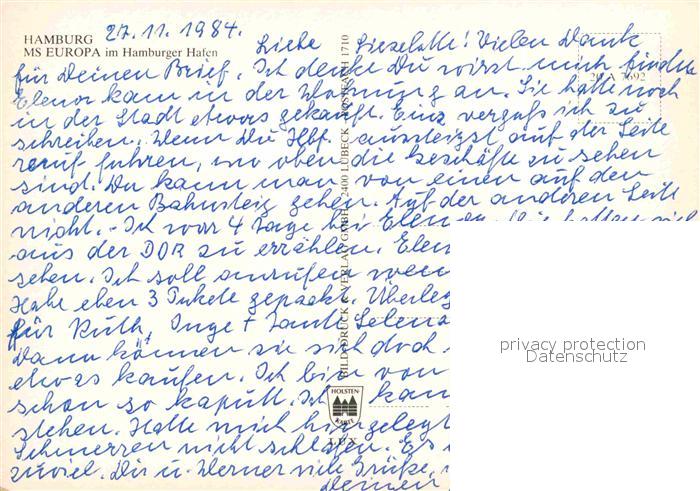 HAMBURG 27.11.1984.
MS EUROPA im Hamburger Hafen
Liebe Lieselotte! Vielen Dank
für Deinen Brief. Ich denke Du wirst mich finden
Elenor kam in der Wohnung an. Sie hatte noch
20 A 7692
in der Stadt etwas gekauft. Einz vergaß ich zu
schreiben. Wenn Du Hbf. aussteigst auf der Seite
rauf fahren, wo oben die Geschäfte zu sehen
sind. Da kann man von einen auf den
anderen Bahnsteig gehen. Auf der anderen Seite
nicht. Ich war 4 Tage bei Elenor. Wir hatten viel
aus der DDR zu erzählen. Elen
sehen. Ich soll anrufen wenn
Habe eben 3 Pakete gepackt. Überleg
für Ruth, Inge + Tante Lelena
Dann können sie sich doch
etwas kaufen. Ich bin von
schon so kaputt. Ich kan
stehen. Hatte mich hingelegt
Schmerzen nicht schlafen. Es
zuviel. Dir u. Werner viele Grüße,
Deinen
BILD DRUCK & VERLAG GMBH 2400 LÜBECK POSTFACH 1710
HOLSTEN
KARTE
LUX
privacy protection
Datenschutz